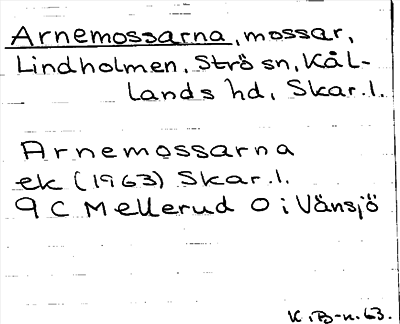 Arnemossarna, mossar,
Lindholmen, Strö sn, Kål-
lands hd, Skar.l.
Arnemossarna
ek (1963) Skar.l.
9 C Mellerud O i Vänsjö
K.B-n.63.